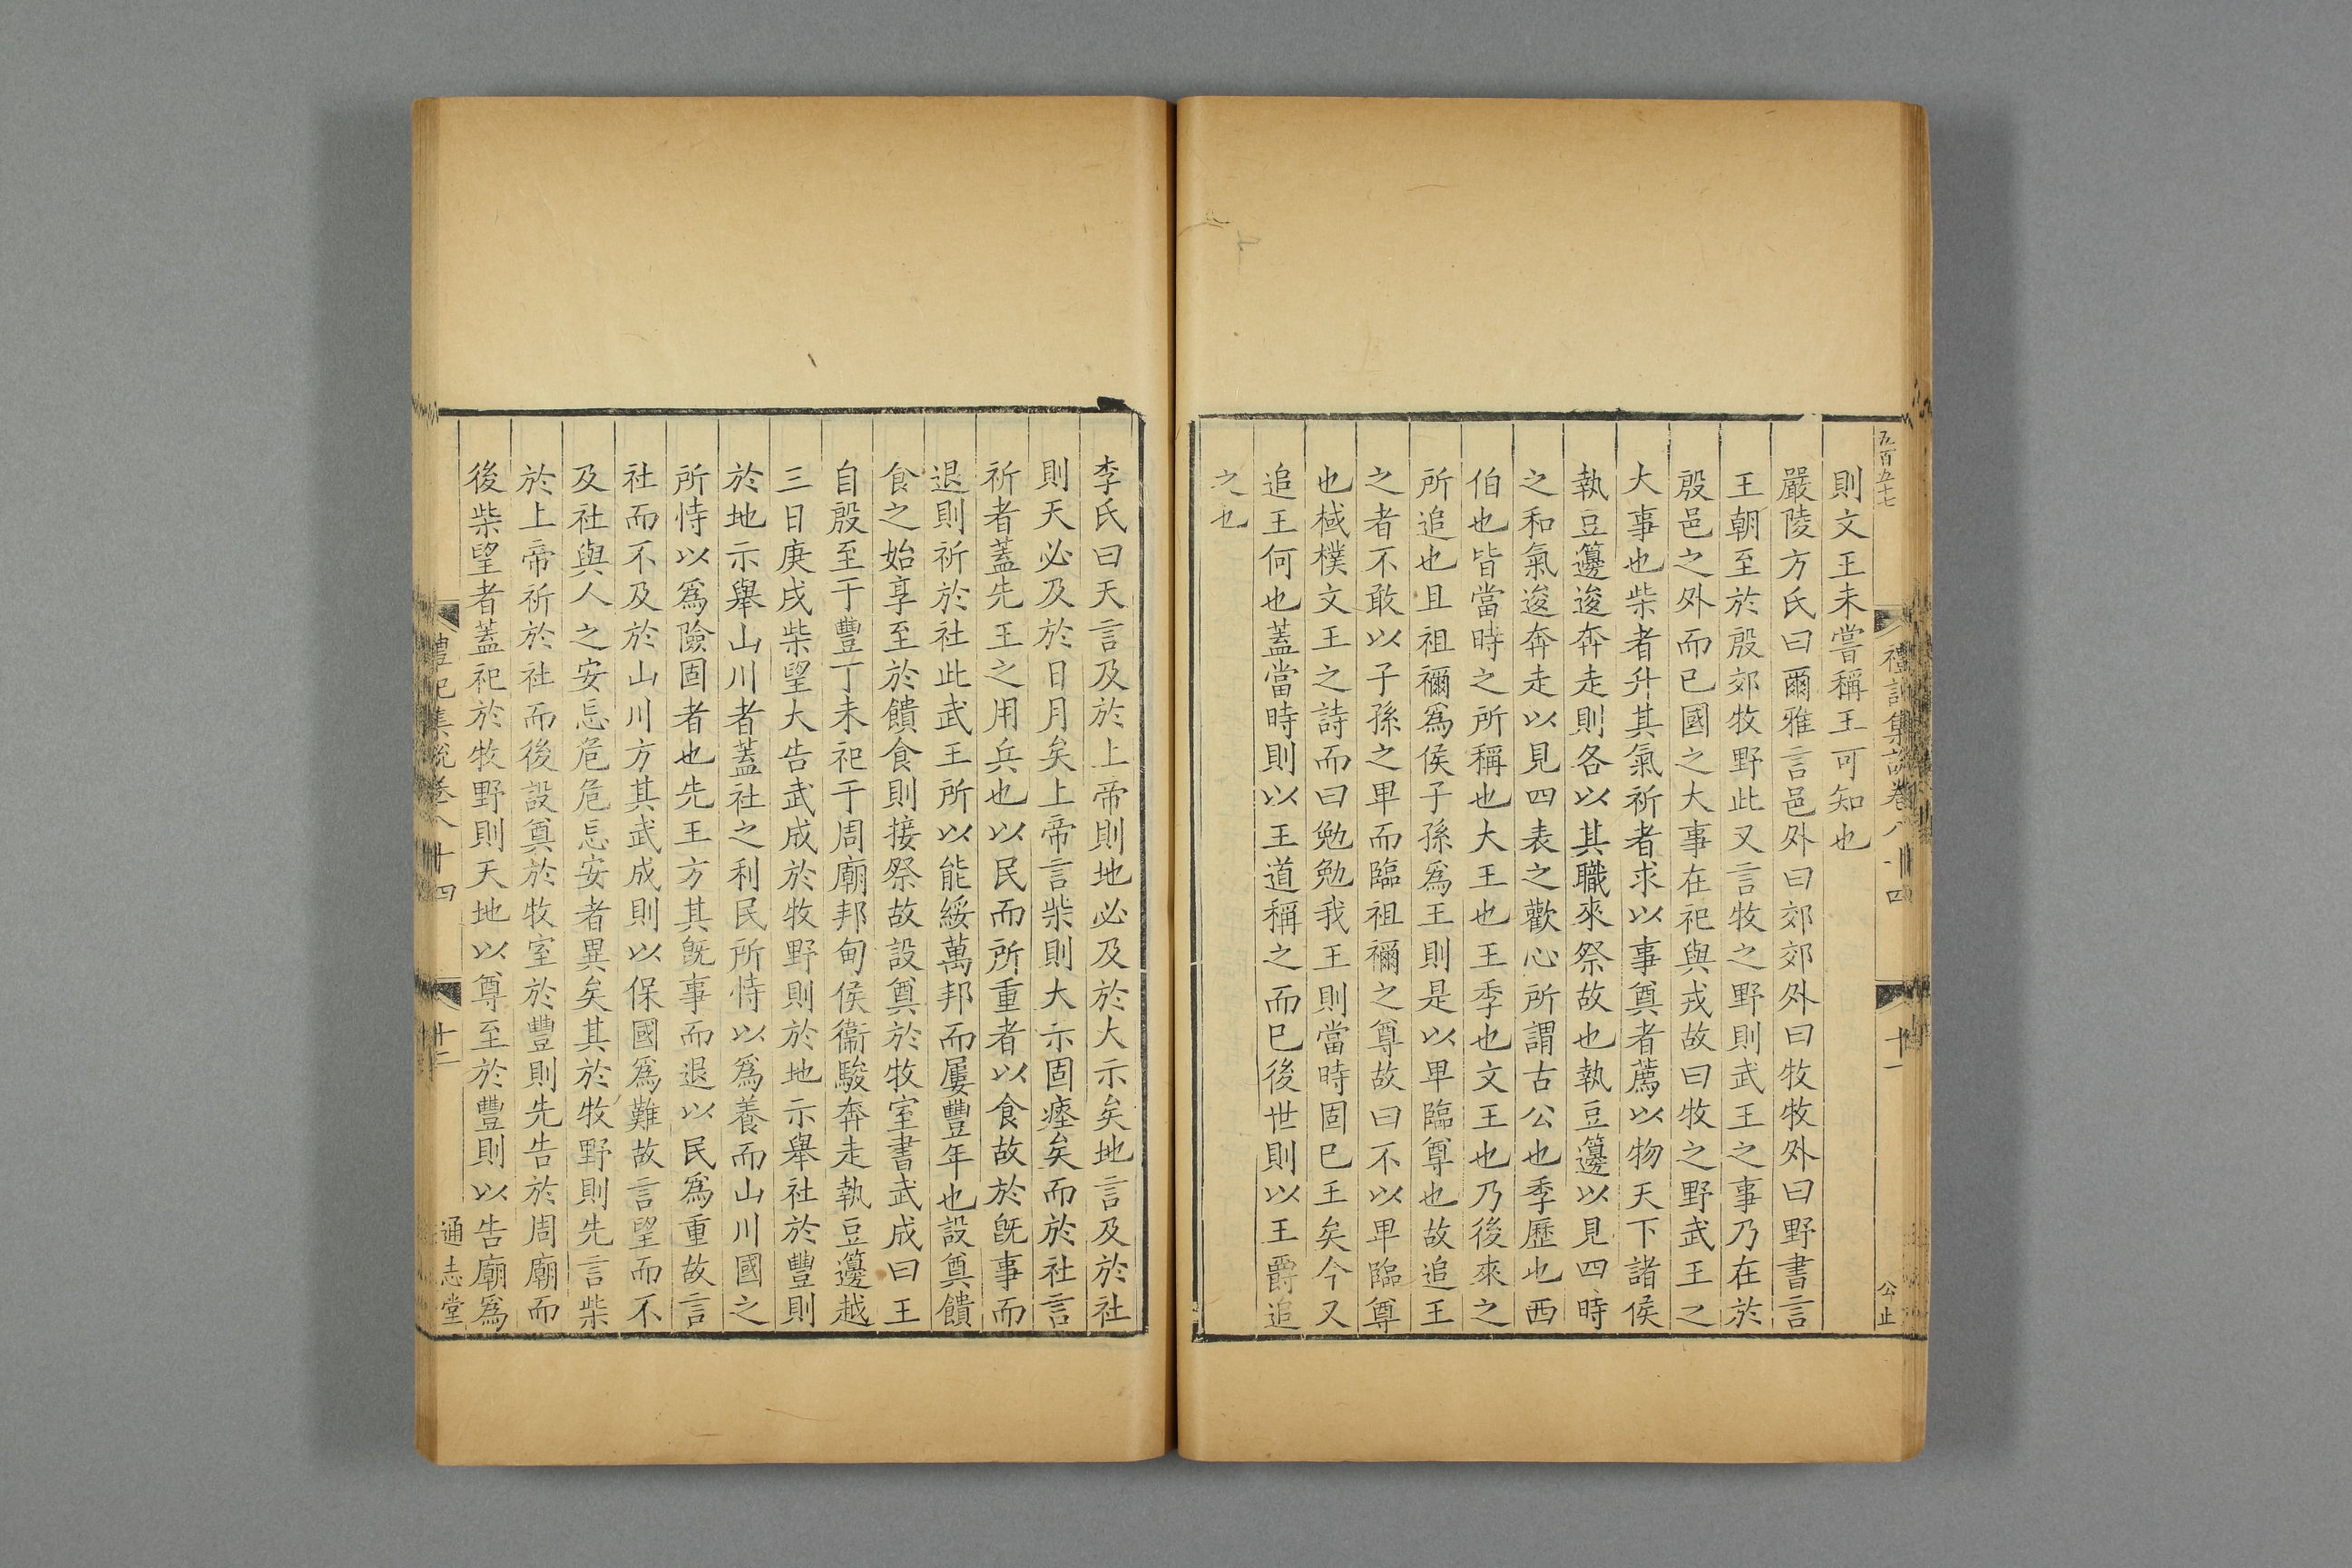 五百五十七
禮記集說卷八十四
十一
公止
則文王未嘗稱王可知也
嚴陵方氏曰爾雅言邑外曰郊郊外曰牧牧外曰野書言
王朝至於殷郊牧野此又言牧之野則武王之事乃在於
殷邑之外而已國之大事在祀與戎故曰牧之野武王之
大事也柴者升其氣祈者求以事奠者薦以物天下諸侯
執豆籩逡奔走則各以其職來祭故也執豆籩以見四時
之和氣逡奔走以見四表之歡心所謂古公也季歷也西
伯也皆當時之所稱也大王也王季也文王也乃後來之
所追也且祖禰爲侯子孫爲王則是以卑臨尊也故追王
之者不敢以子孫之卑而臨祖禰之尊故曰不以卑臨尊
也棫樸文王之詩而曰勉勉我王則當時固已王矣今又
追王何也蓋當時則以王道稱之而已後世則以王爵追
之也
李氏曰天言及於上帝則地必及於大示矣地言及於社
則天必及於日月矣上帝言柴則大示固瘞矣而於社言
祈者蓋先王之用兵也以民而所重者以食故於旣事而
退則祈於社此武王所以能綏萬邦而屢豐年也設奠饋
食之始享至於饋食則接祭故設奠於牧室書武成曰王
自殷至于豐丁未祀于周廟邦甸侯衞駿奔走執豆籩越
三日庚戌柴望大告武成於牧野則於地示舉社於豐則
於地示舉山川者蓋社之利民所恃以爲養而山川國之
所恃以爲險固者也先王方其旣事而退以民爲重故言
社而不及於山川方其武成則以保國爲難故言望而不
及社與人之安忘危危忘安者異矣其於牧野則先言柴
於上帝祈於社而後設奠於牧室於豐則先告於周廟而
後柴望者蓋祀於牧野則天地以尊至於豐則以告廟爲
禮記集說卷八十四
十二
通志堂